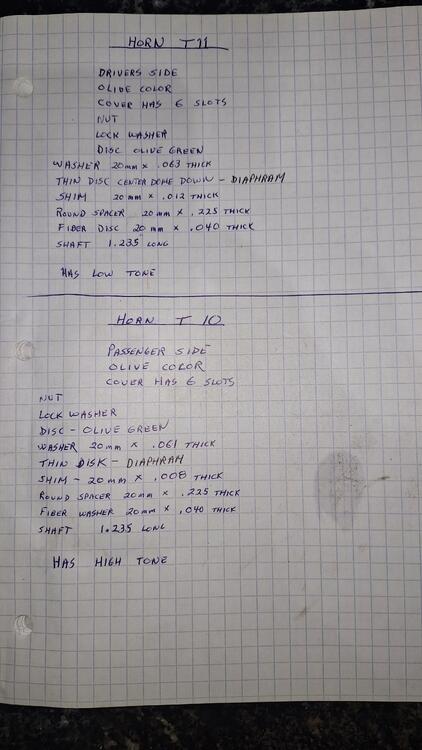 HORN T11
DRIVERS SIDE
OLIVE COLOR
COVER HAS 6 SLOTS
NUT
LOCK WASHER
DISC OLIVE GREEN
WASHER 20mm x .063 THICK
THIN DISC CENTER DOME DOWN - DIAPHRAM
SHIM 20mm x .012 THICK
ROUND SPACER 20mm x .225 THICK
FIBER DISC 20mm x .040 THICK
SHAFT 1.235 LONG
HAS LOW TONE
HORN T 10
PASSENGER SIDE
OLIVE COLOR
COVER HAS 6 SLOTS
NUT
LOCK WASHER
DISC - OLIVE GREEN
WASHER 20mm x .061 THICK
THIN DISK - DIAPHRAM
SHIM - 20mm x .008 THICK
ROUND SPACER 20mm x .225 THICK
FIBER WASHER 20mm x .040 THICK
SHAFT 1.235 LONG
HAS HIGH TONE